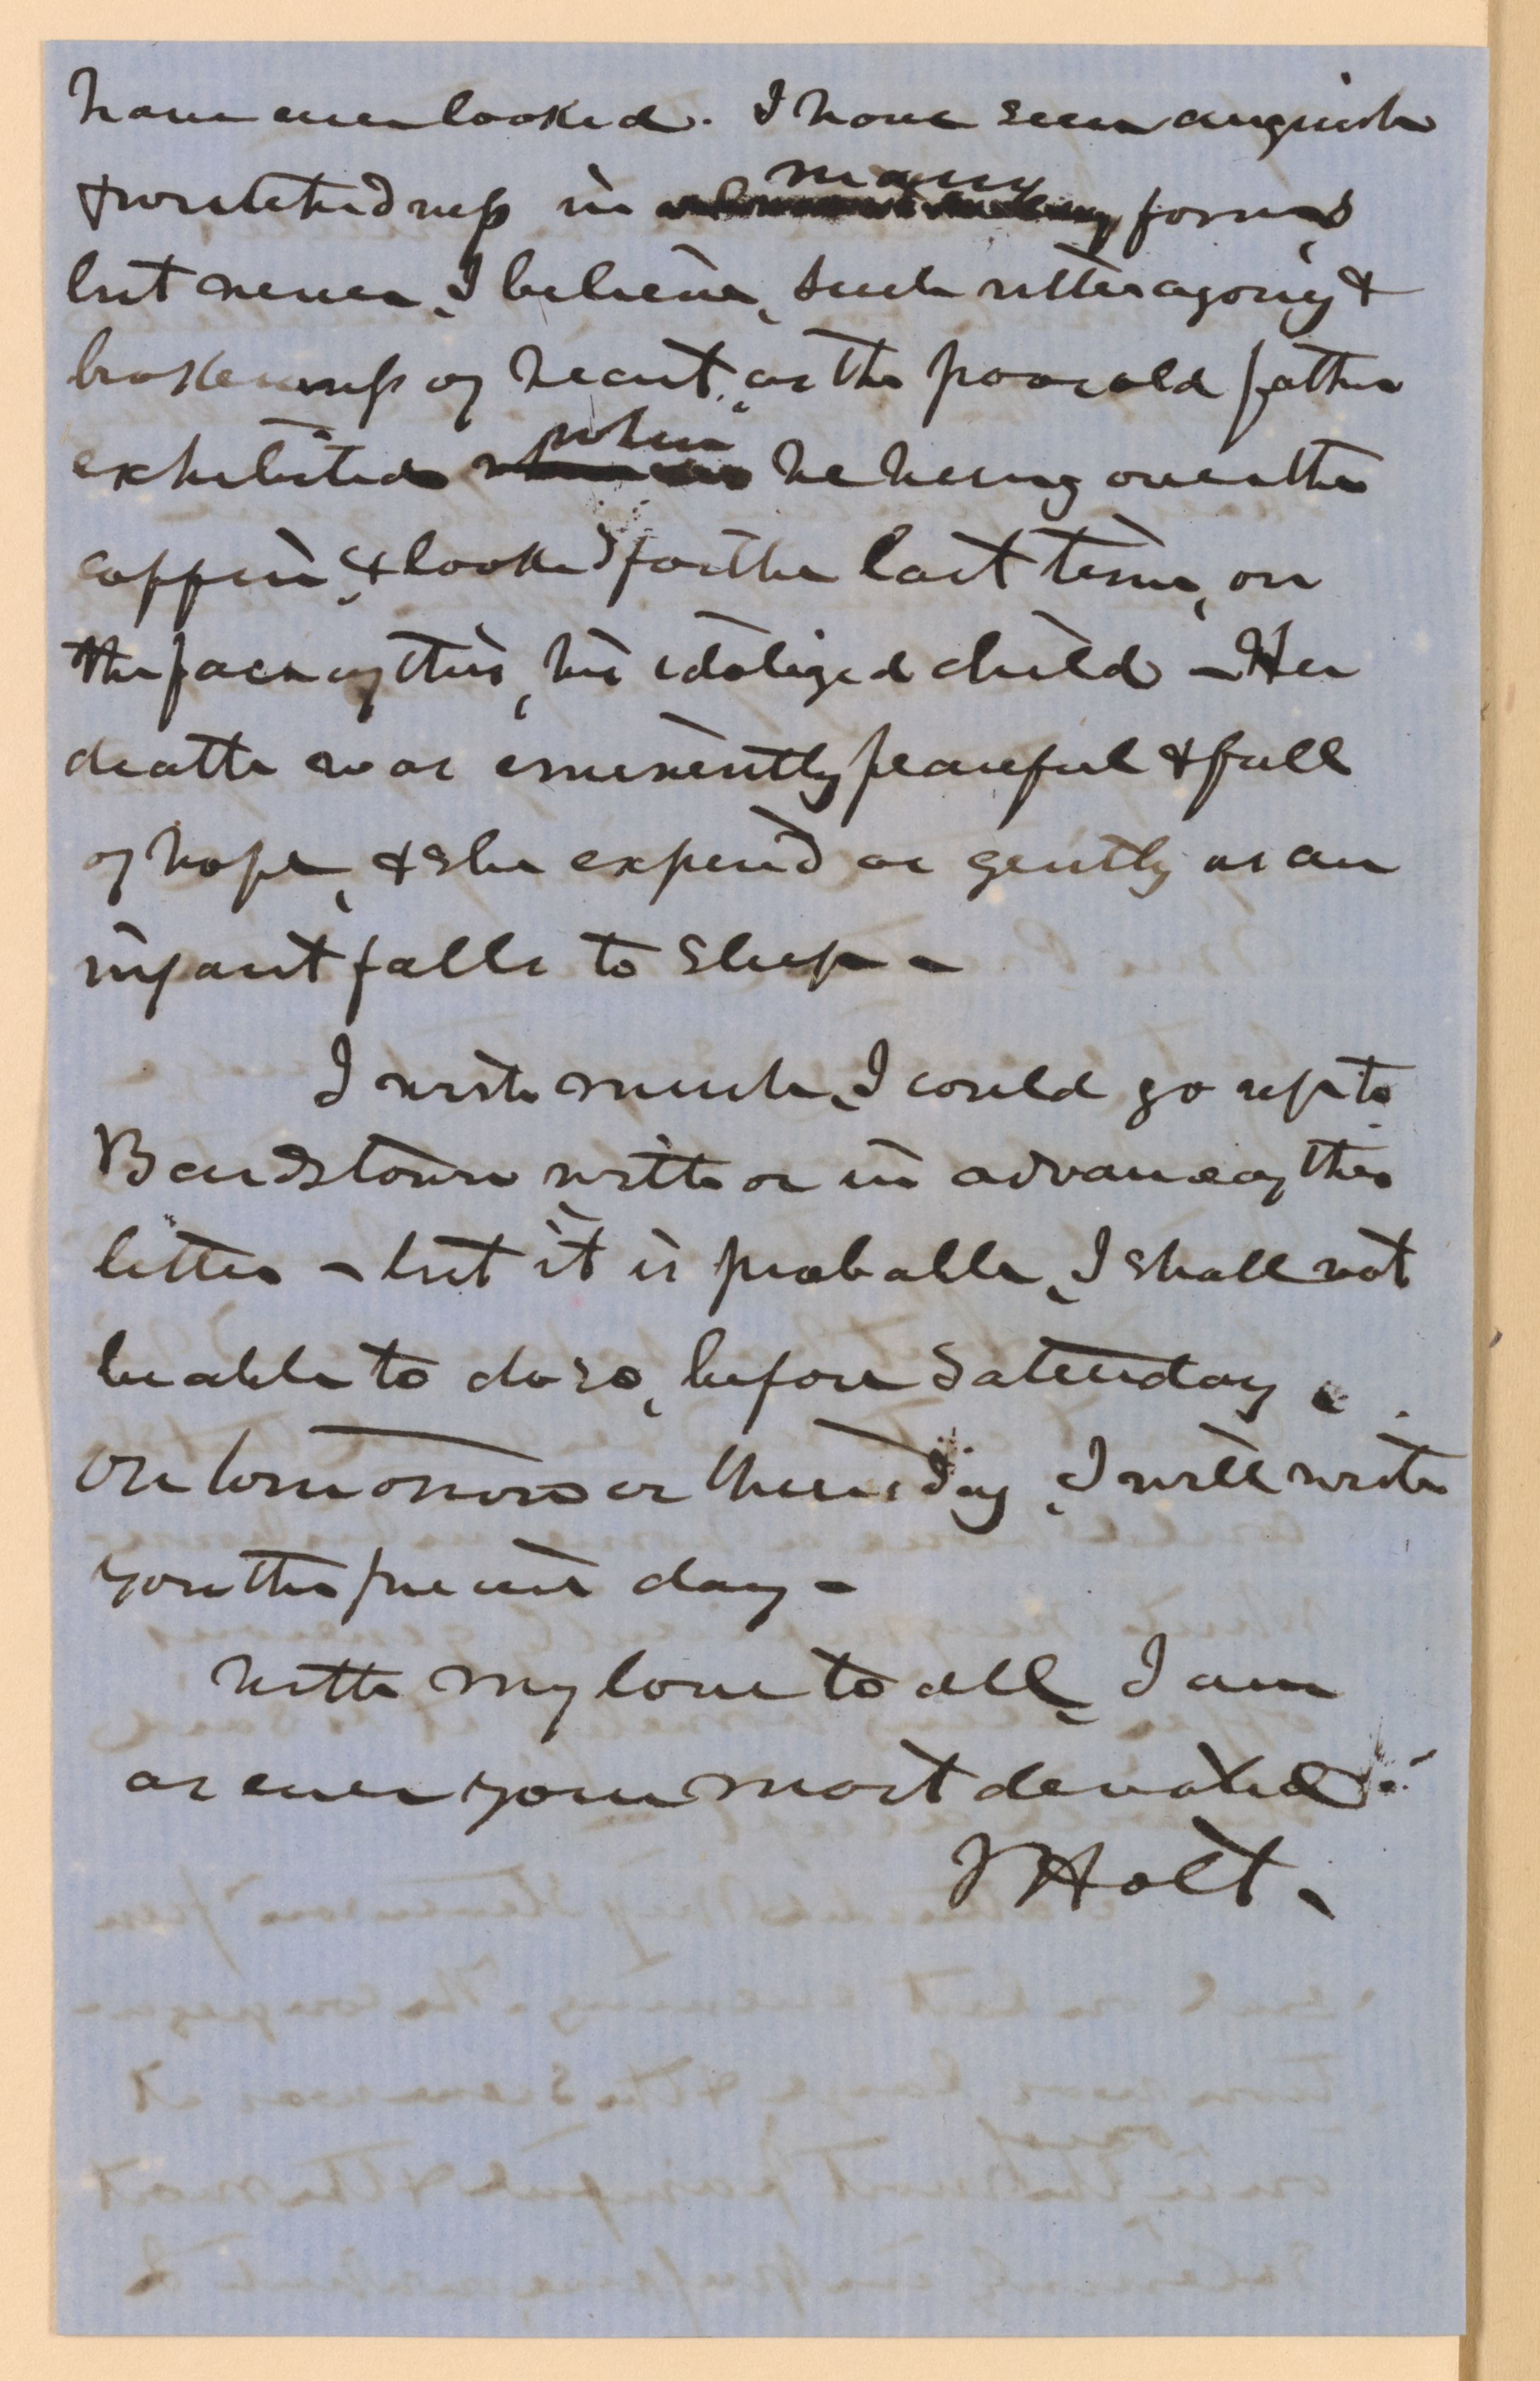 have ever looked. I have seen anguish
& wretchedness in many forms,
but never, I believe, such utter agony &
brokenness of heart, as the poor old father
exhibited when he hung over the
coffin, & looked for the last time, on
the face of this, his idolized child – Her
death was eminently peaceful & full
of hope, & she expired as gently as an
infant falls to sleep –
I wish much, I could go up to
Bardstown with or in advance of this
letter – but it is probable, I shall not
be able to do so, before Saturday.
On tomorrow or thursday, I will write
you the precise day –
With my love to all, I am
as ever your most devoted
J Holt.